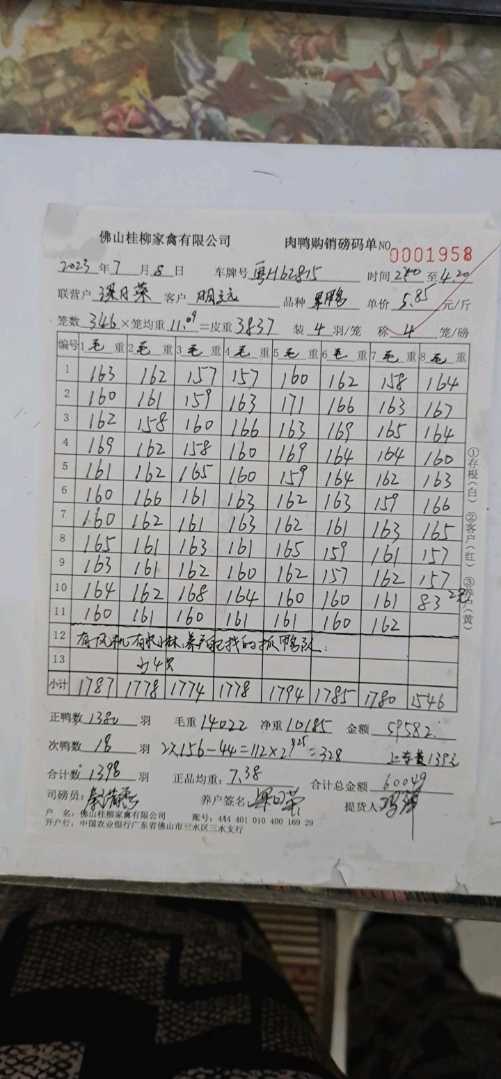 佛山桂柳家禽有限公司 肉鸭购销磅码单 NO 0001958
2023 年 7 月 8 日 车牌号 粤H62815 时间 2:40 至 4:20
联营户 客户 品种 单价 5.85 元/斤
笼数 346 ×笼均重 11.09 =皮重 3837 装 4 羽/笼 称 4 笼/磅
编号 1 毛 重 2 毛 重 3 毛 重 4 毛 重 5 毛 重 6 毛 重 7 毛 重 8 毛 重
1 163 162 157 157 160 162 158 164
2 160 161 159 163 171 166 163 167
3 162 158 160 166 163 169 165 164
4 169 162 158 160 169 164 164 160
5 161 162 165 160 159 164 162 163
6 160 166 161 163 162 163 159 166
7 160 162 161 163 162 161 163 165
8 165 161 163 161 165 159 161 157
9 163 161 162 160 162 157 162 157
10 164 162 168 164 160 160 161 83
11 160 161 160 161 161 160 162
12 有风机 找的抓鸭队
13
小计 1787 1778 1774 1778 1794 1785 1780 1546
①存根(白) ②客户(红) ③养户(黄)
正鸭数 1380 羽 毛重 14022 净重 10185 金额 59582
次鸭数 18 羽 2×156-44=112×2.925=328
合计数 1398 羽 正品均重: 7.38 合计总金额 60049
司磅员: 养户签名 提货人
户 名: 佛山桂柳家禽有限公司 账号: 444 401 010 400 169 29
开户行: 中国农业银行广东省佛山市三水区三水支行